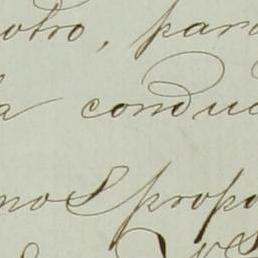 otro, para
a conduc
mos propo